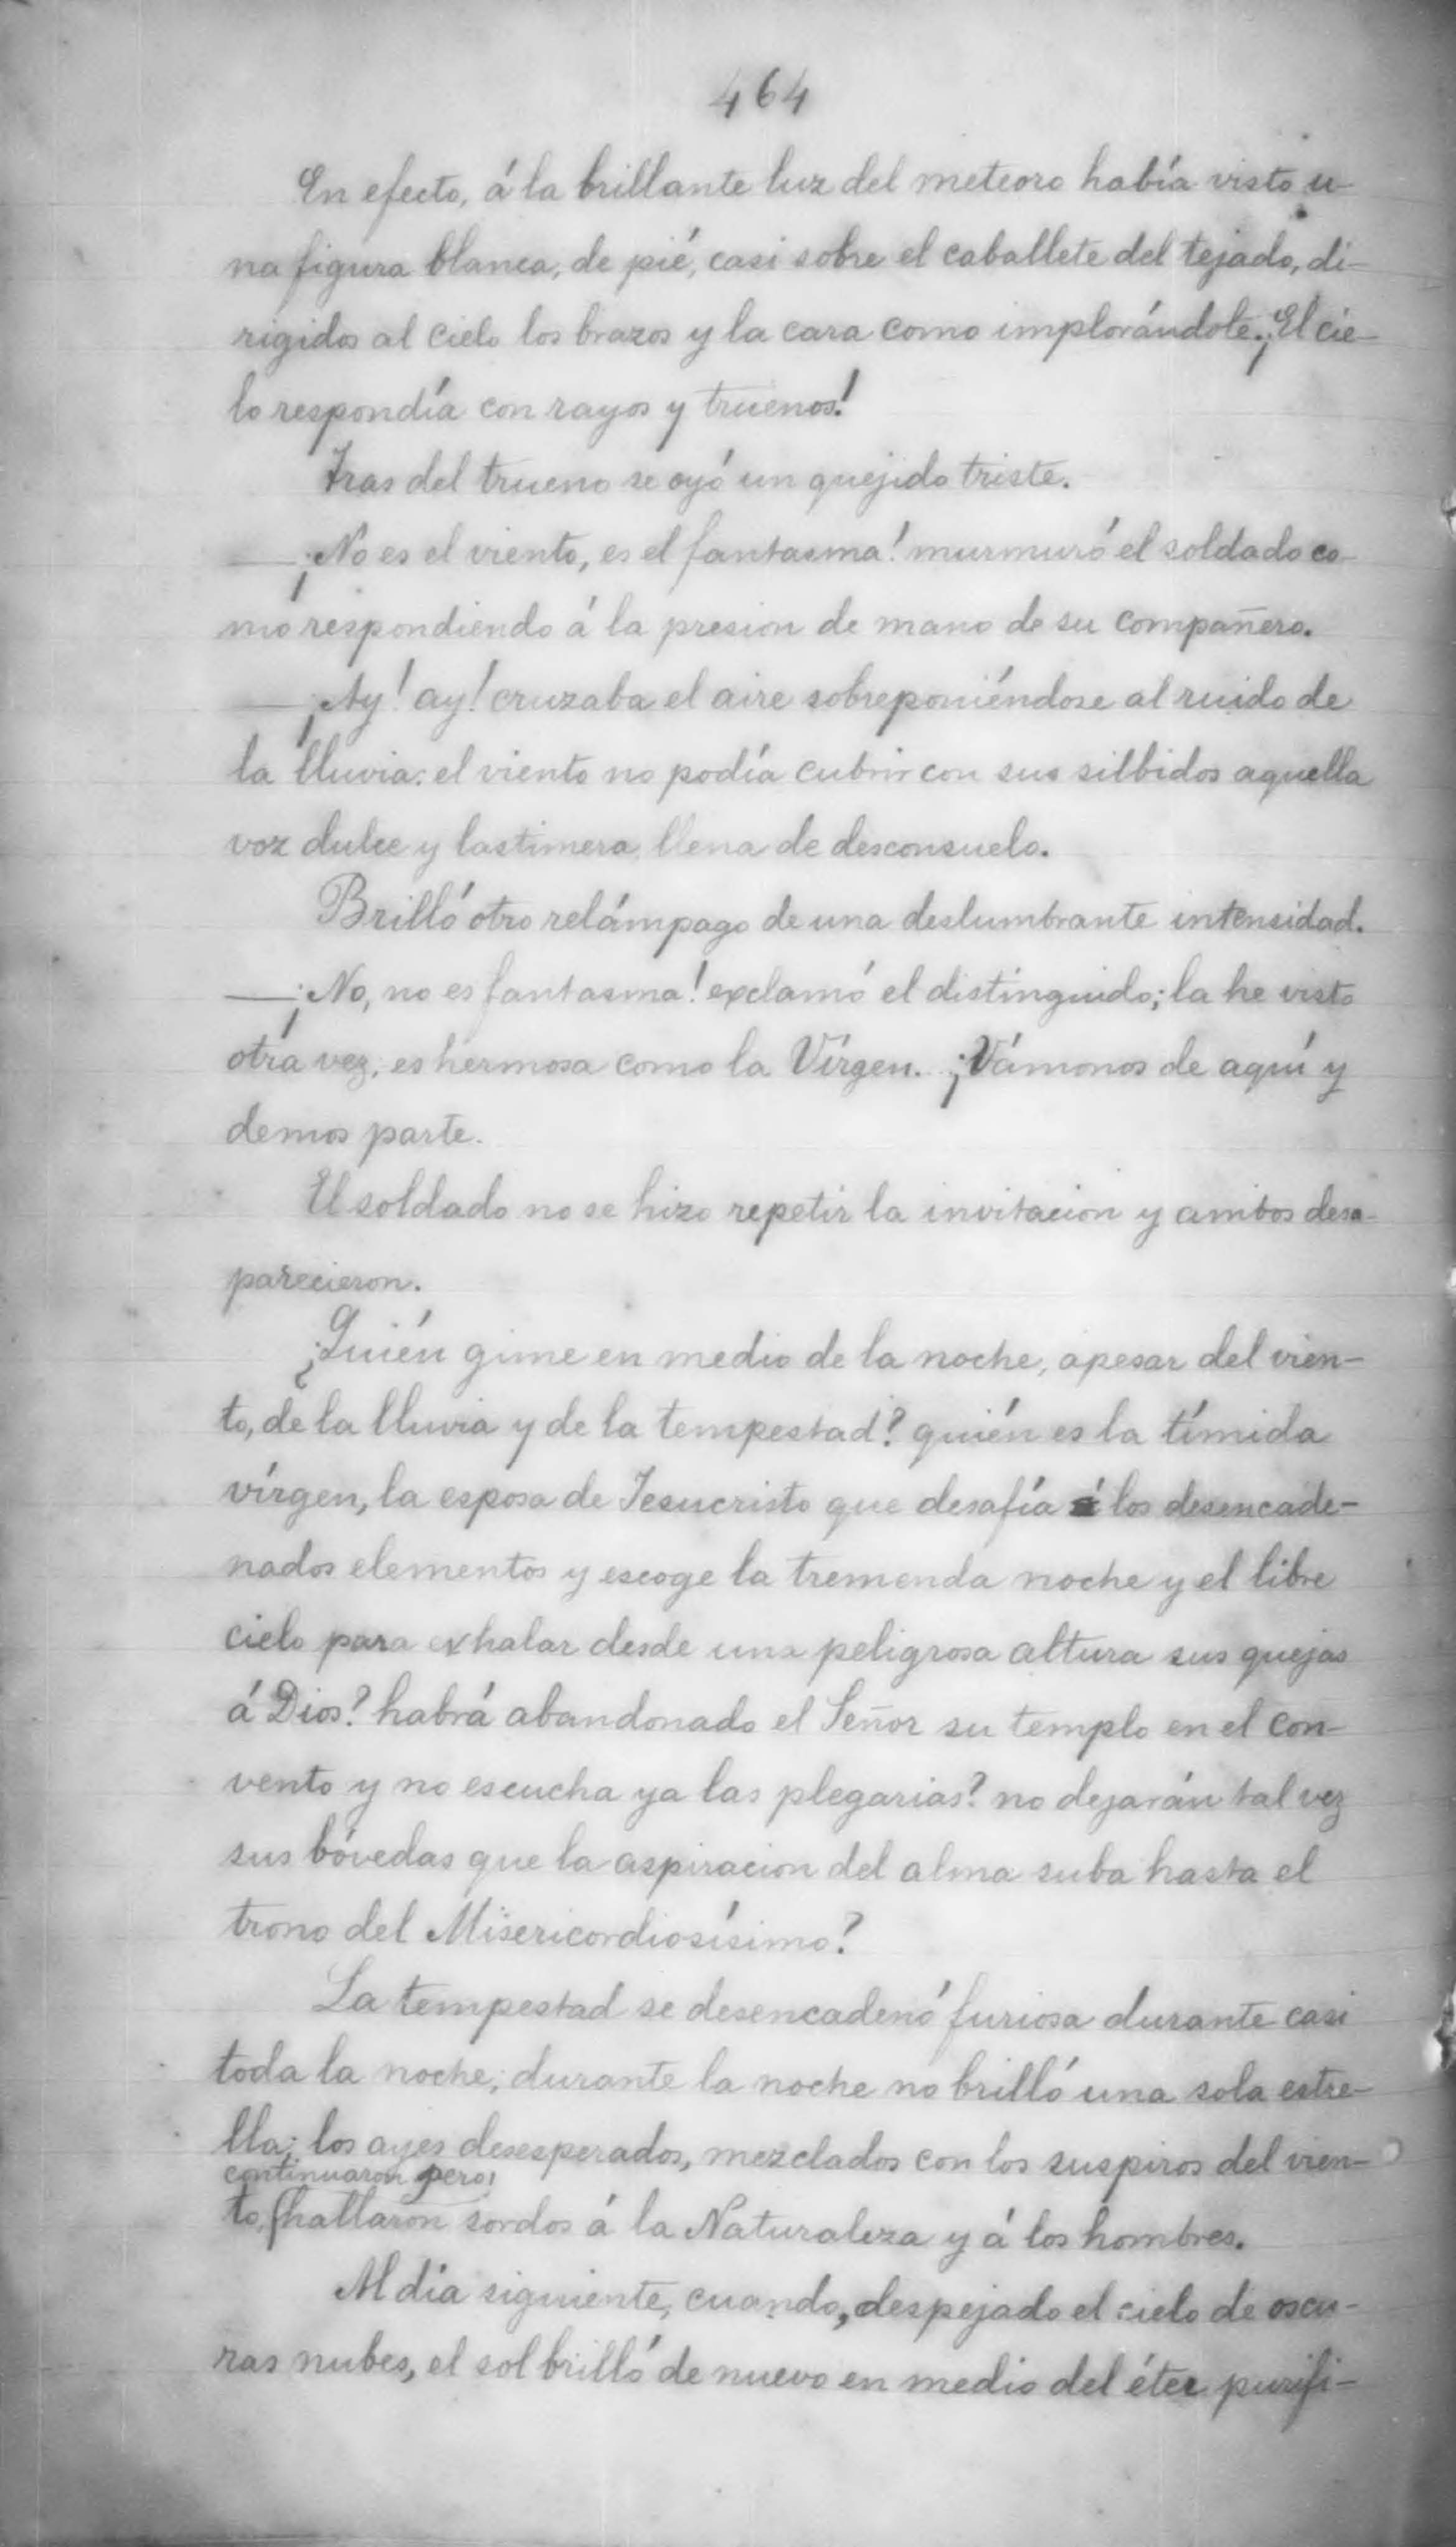 464
En efecto, á la brillante luz del meteoro había visto u-
na figura blanca, de pié, casi sobre el caballete del tejado, di-
rigidos al cielo los brazos y la cara como implorándole. ¡El cie-
lo respondía con rayos y truenos!
Tras del trueno se oyó un quejido triste.
— ¡No es el viento, es el fantasma! murmuró el soldado co-
mo respondiendo á la presion de mano de su compañero.
— ¡Ay! ay! cruzaba el aire sobreponiéndose al ruido de
la lluvia: el viento no podía cubrir con sus silbidos aquella
voz dulce y lastimera, llena de desconsuelo.
Brilló otro relámpago de una deslumbrante intensidad.
— ¡No, no es fantasma! exclamó el distinguido; la he visto
otra vez; es hermosa como la Vírgen. ¡Vámonos de aquí y
demos parte.
El soldado no se hizo repetir la invitacion y ambos desa-
parecieron.
¿Quién gime en medio de la noche, apesar del vien-
to, de la lluvia y de la tempestad? quién es la tímida
vírgen, la esposa de Jesucristo que desafía á los desencade-
nados elementos y escoge la tremenda noche y el libre
cielo para exhalar desde una peligrosa altura sus quejas
á Dios? habrá abandonado el Señor su templo en el con-
vento y no escucha ya las plegarias? no dejarán tal vez
sus bóvedas que la aspiracion del alma suba hasta el
trono del Misericordiosísimo?
La tempestad se desencadenó furiosa durante casi
toda la noche; durante la noche no brilló una sola estre-
lla; los ayes desesperados, mezclados con los suspiros del vien-
continuaron pero
to, hallaron sordos á la Naturaleza y á los hombres.
Al día siguiente, cuando, despejado el cielo de oscu-
ras nubes, el sol brilló de nuevo en medio del éter purifi-